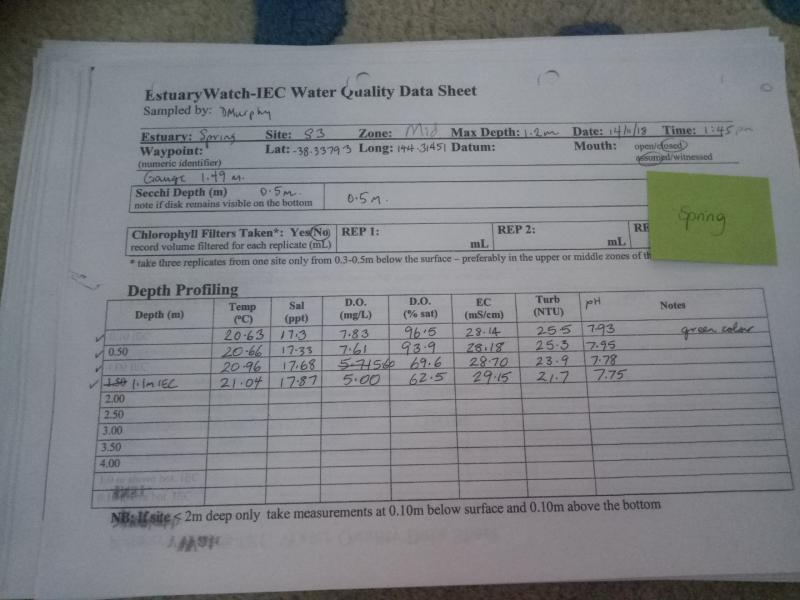 EstuaryWatch-IEC Water Quality Data Sheet
Sampled by: DMurphy
Estuary: Spring Site: S3 Zone: Mid Max Depth: 1.2m Date: 14/11/18 Time: 1:45pm
Waypoint: Lat: -38.33793 Long: 144.31451 Datum: Mouth: open/closed
(numeric identifier) assumed/witnessed
Gauge 1.49 m.
Secchi Depth (m) 0.5m. 0.5m.
note if disk remains visible on the bottom
Spring
Chlorophyll Filters Taken*: Yes/No REP 1: mL REP 2: mL RE
record volume filtered for each replicate (mL)
* take three replicates from one site only from 0.3-0.5m below the surface – preferably in the upper or middle zones of th
Depth Profiling
Depth (m) Temp (°C) Sal (ppt) D.O. (mg/L) D.O. (% sat) EC (mS/cm) Turb (NTU) pH Notes
0.10 IEC 20.63 17.3 7.83 96.5 28.14 25.5 7.93 green colour
0.50 20.66 17.33 7.61 93.9 28.18 25.3 7.95
1.00 IEC 20.96 17.68 5.60 69.6 28.70 23.9 7.78
1.50 1.1m IEC 21.04 17.87 5.00 62.5 29.15 21.7 7.75
2.00
2.50
3.00
3.50
4.00
NB: If site < 2m deep only take measurements at 0.10m below surface and 0.10m above the bottom